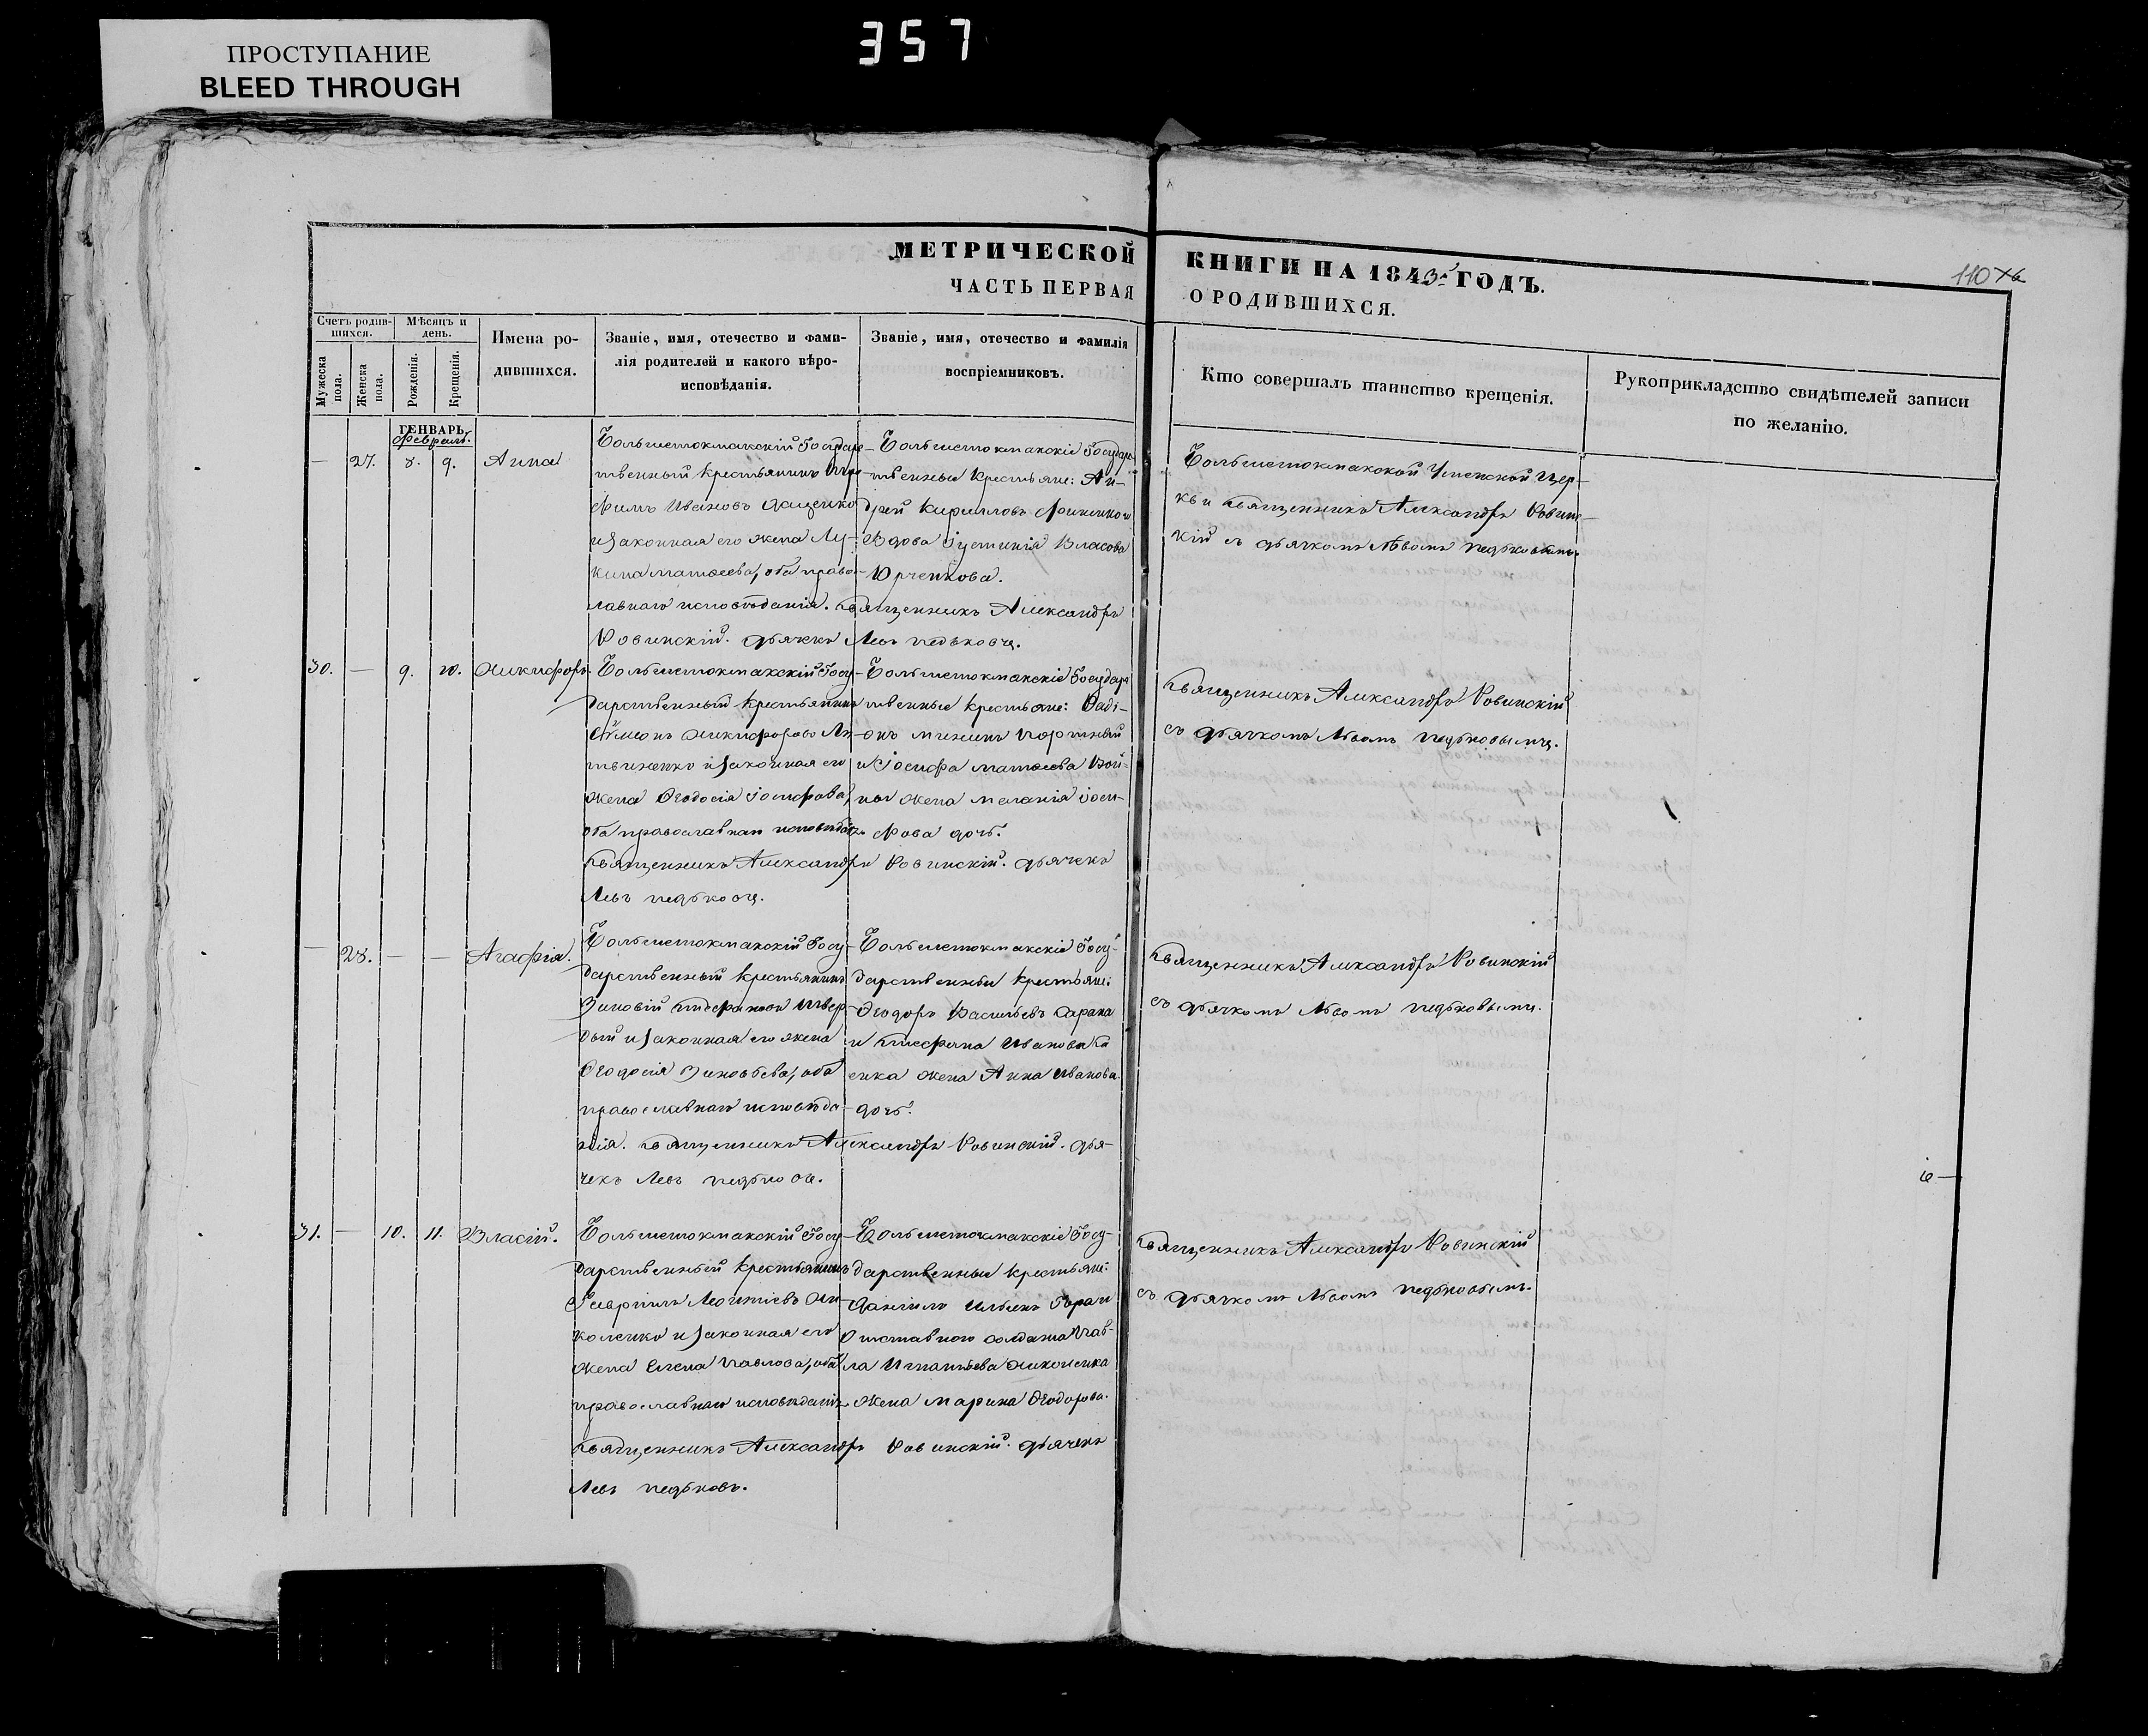 ПРОСТУПАНИЕ
BLEED THROUGH
357
110
МЕТРИЧЕСКОЙ КНИГИ НА 1843й ГОДЪ.
ЧАСТЬ ПЕРВАЯ О РОДИВШИХСЯ.
Счетъ родив-
шихся.
Мужеска
пола.
Женска
пола.
Мѣсяцъ и
день.
Рожденія.
Крещенія.
Имена ро-
дившихся.
Званіе, имя, отечество и фами-
лія родителей и какого вѣро-
исповѣданія.
Званіе, имя, отечество и фамилія
воспріемниковъ.
Кто совершалъ таинство крещенія.
Рукоприкладство свидѣтелей записи
по желанію.
ГЕНВАРЬ
Февраль.
— 27. 8. 9. Анна
Большетокмакскій Государс-
твенный Крестьянинъ
Ивановъ Ященко
и законная его жена Лу-
кина Матѳеева, оба право-
лавнаго исповѣданія. Священникъ Александръ
Ровинскій. Дьячекъ Левъ
Большетокмакскіе Государс-
твенные Крестьяне: Ан-
дрей Кирилловъ и
Вдова Іустинія Власова
Юрченкова.
Большетокмакской Успенской Цер-
кви Священникъ Александръ Ровин-
скій съ дьячкомъ Львомъ
30. — 9. 10. Никифоръ.
Большетокмакскій Госу-
дарственный Крестьянинъ
Симеонъ Никифоровъ Ли-
твиненко и законная его
жена Ѳеодосія Іосифова,
оба православнаго исповѣдан.
Священникъ Александръ Ровинскій. Дьячекъ
Левъ
Большетокмакскіе Государс-
твенные Крестьяне: Радi-
онъ Мининъ Портный
и Іосифа Матѳеева Вой-
ны жена Меланія Іоси-
фова дочь.
Священникъ Александръ Ровинскій
съ дьячкомъ Львомъ
— 28. — — Агафія.
Большетокмакскій Госу-
дарственный Крестьянинъ
Зиновій Стефановъ Твер-
дый и законная его жена
Ѳеодосія Зиновьева, оба
православнаго исповѣда-
нія. Священникъ Александръ Ровинскій. Дья-
чекъ Левъ
Большетокмакскіе Госу-
дарственные Крестьяне:
Ѳеодоръ Васильевъ Сарана
и Стефана Иванова
жена Анна Иванова
дочь.
Священникъ Александръ Ровинскій
съ дьячкомъ Львомъ
31. — 10. 11. Власій.
Большетокмакскій Госу-
дарственный Крестьянинъ
Гавріилъ Леонтіевъ Ни-
коленко и законная его
жена Елена Павлова, оба
православнаго исповѣданія
Священникъ Александръ Ровинскій. Дьячекъ
Левъ
Большетокмакскіе Госу-
дарственные Крестьяне:
Даніилъ Ильинъ и
Отставного солдата Пав-
ла Игнатьева
жена Марина Ѳеодорова.
Священникъ Александръ Ровинскій
съ дьячкомъ Львомъ